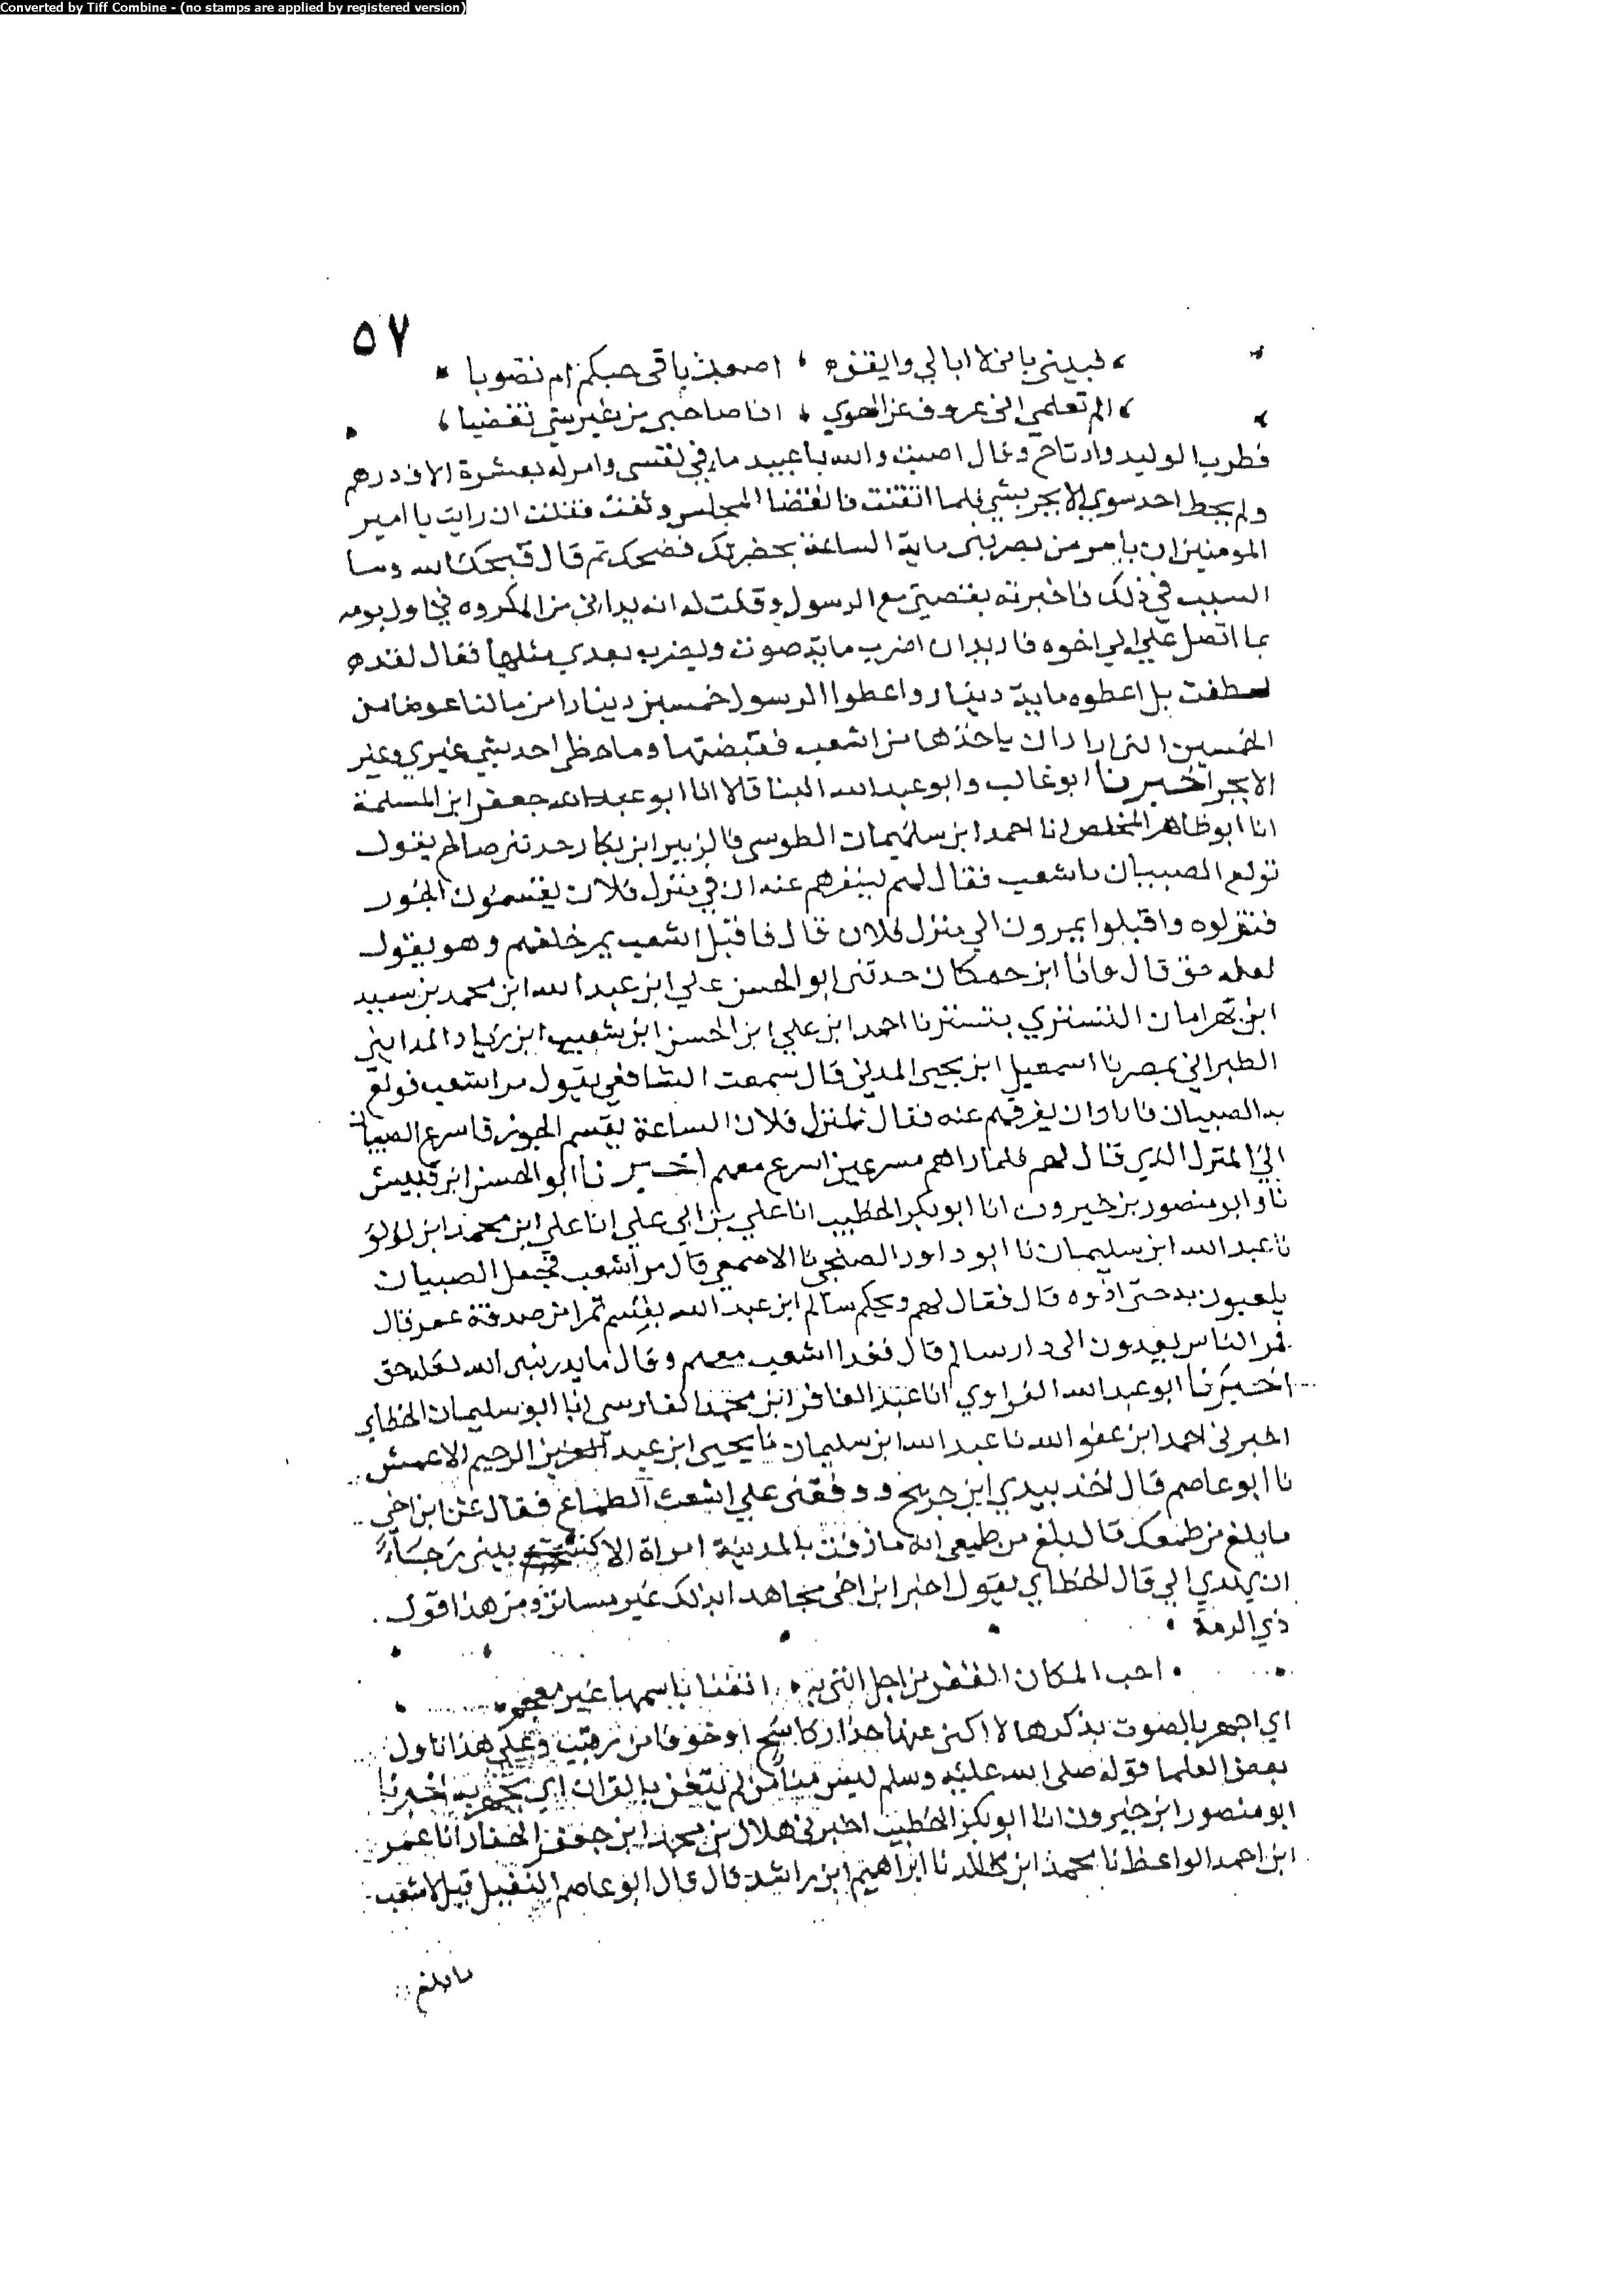 Converted by Tiff Combine - (no stamps are applied by registered version)
٥٧
فبيني باني لا ابالي وايقنوه اصعد باقي حبكم ام تصوبا
الم تعلمي اني عزوف عن الهوي اذا صاحبي من غير شي تغضبا
فطرب الوليد وارتاح وقال اصبت والله يا عبيد ما في نفسي وامر له بعشرة الاف درهم
ولم يحط احد سوي الابجر بشي فلما انقضا المجلس وثبت فقلت ان رايت يا امير
المومنين ان يامر من يضربني ماية الساعة بحضرتك فضحك ثم قال قبحك الله وما
السبب في ذلك فاخبرته بقصتي مع الرسول وقلت له انه بداني من المكروه في اول يومه
بما اتصل علي الي اخره فاريد ان اضرب ماية صوت ويضرب بعدي مثلها فقال لقده
لطفت بل اعطوه ماية دينار واعطوا الرسول خمسين دينارا من مالنا عوضا من
الخمسين التي اراد ان ياخذها من اشعب فقبضتها وما حظي احد بشي غيري وغير
الابجر اخبرنا ابو غالب وابو عبد الله البنا قالا انا ابو عبد الله جعفر ابن المسلمة
انا ابو طاهر المخلص انا احمد ابن سليمان الطوسي نا الزبير ابن بكار حدثني صالح يقول
تولع الصبيان باشعب فقال لهم لينفرهم عنه ان في منزل فلان يقتسمون الجوز
فتنزلوه واقبلوا يمرون الي منزل فلان قال فاقبل اشعب يمر خلفهم وهو يقول
لعله حق قال وانا ابن حمكان حدثني ابو الحسن علي ابن عبد الله ابن محمد بن سعيد
ابن بهرامان التستري بتستر نا احمد ابن علي ابن الحسن ابن شعيب ابن زياد المدايني
الطبراني بمصر نا اسمعيل ابن يحيى المدني قال سمعت الشافعي يقول مر اشعب فولع
به الصبيان فاراد ان يفرقهم عنه فقال لمنزل فلان الساعة يقسم الجوز فاسرع الصبيان
الي المنزل الذي قال لهم فلما راهم مسرعين اسرع معهم اخبرنا ابو الحسن ابن قبيس
نا وابو منصور بن خيرون انا ابو بكر الخطيب انا علي بن ابي علي انا علي ابن محمد ابن لولو
نا عبد الله ابن سليمان نا ابو داود الصنجي نا الاصمعي قال مر اشعب فجعل الصبيان
يلعبون به حتى اذوه قال فقال لهم ويحكم سالم ابن عبد الله يقسم تمرا من صدقة عمر قال
فمر الناس يعدون الى دار سالم قال فعدا اشعب معهم وقال ما يدريني الله لعله حق
اخبرنا ابو عبد الله الفراوي انا عبد الغافر ابن محمد الفارسي انا ابو سليمان الخطابي
اخبرني احمد ابن عفو الله نا عبد الله ابن سليمان نا يحيى ابن عبد الرحيم الاعمش
نا ابو عاصم قال اخذ بيدي ابن جريج ووقفني علي اشعث الطماع فقال حدث ابن اخي
ما بلغ من طمعك قال بلغ من طمعي انه ما زفت بالمدينة امراة الا كنست بيتي رجاء
ان تهدي الي قال الخطابي يقول اخبر ابن اخي مجاهدا بذلك غير مساتر ومن هذا قول
ذي الرمة
احب المكان القفر من اجل انني به اتغنا باسمها غير معجم
اي اجهر بالصوت بذكرها لا اكني عنها حذار كاشح او خوفا من رقيب وعلي هذا تاول
بعض العلما قوله صلى الله عليه وسلم ليس منا من لم يتغن بالقران اي يجهر به اخبرنا
ابو منصور ابن خيرون انا ابو بكر الخطيب اخبرني هلال بن محمد ابن جعفر الحفار انا عمر
ابن احمد الواعظ نا محمد ابن مخلد نا ابراهيم ابن راشد قال قال ابو عاصم النبيل قيل لاشعب
ما بلغ